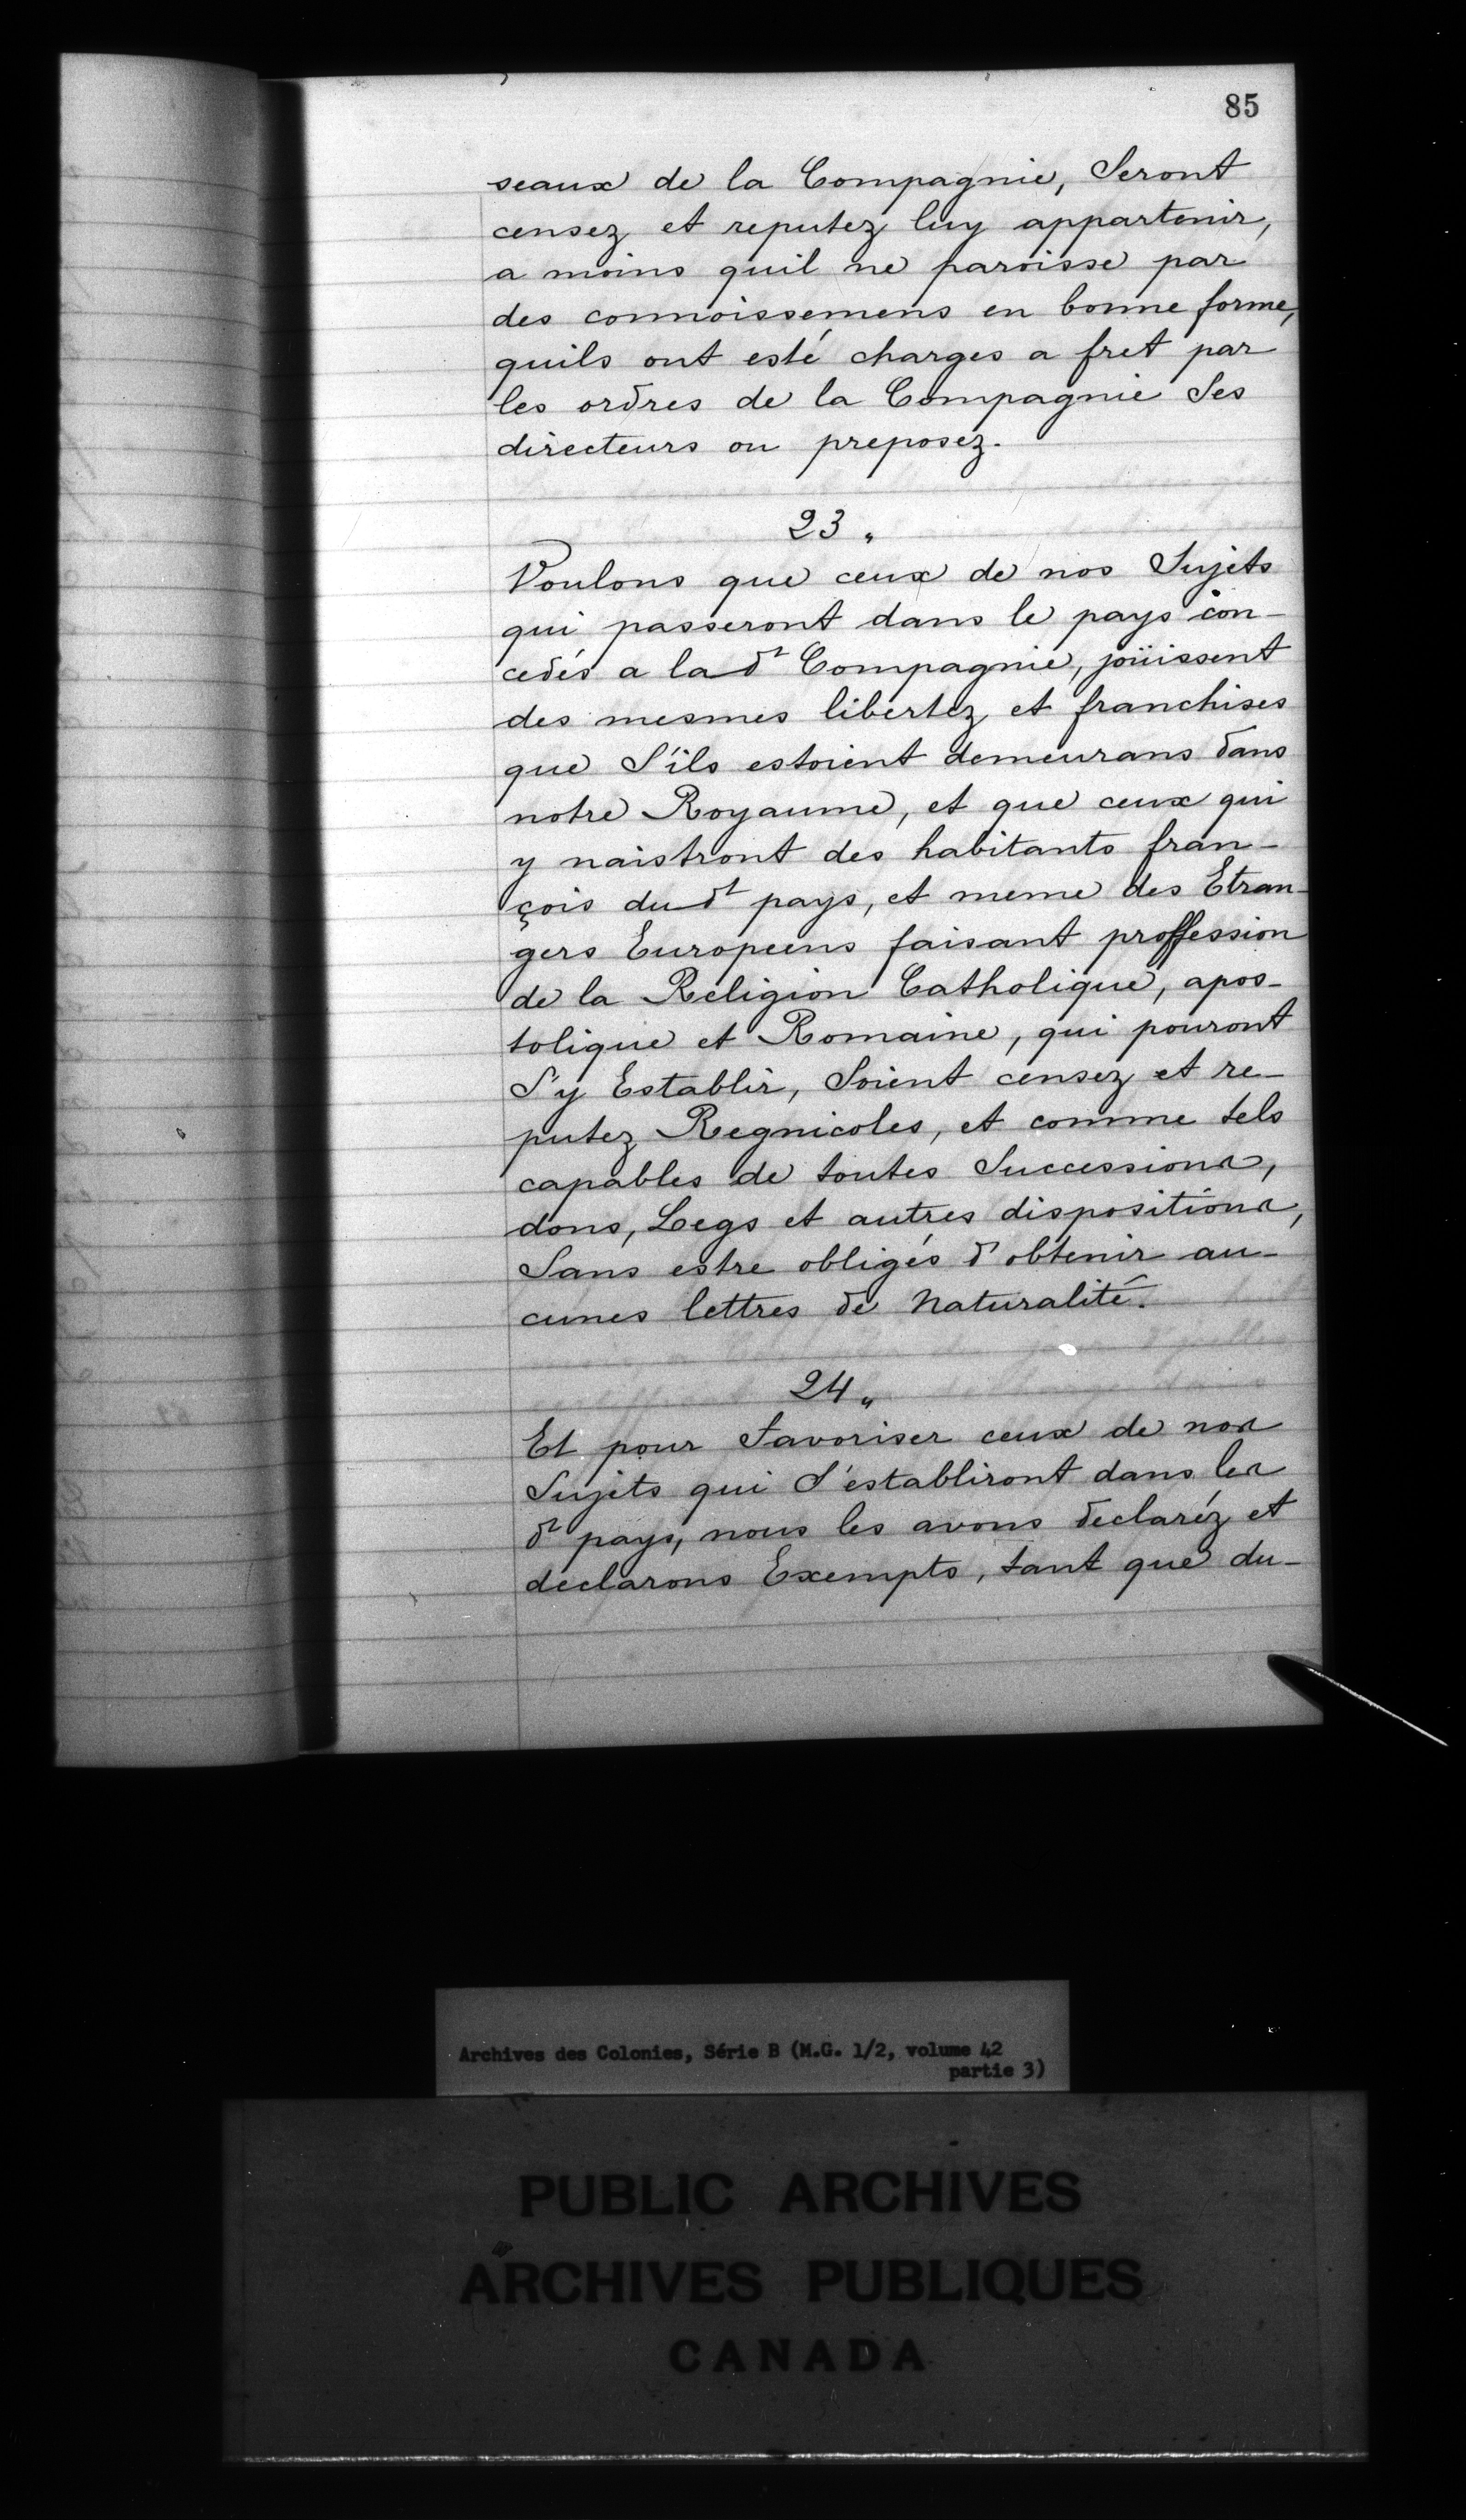 85
seaux de la Compagnie, Seront
censez et reputez luy appartenir,
a moins quil ne paroisse par
des connoissemens en bonne forme,
quils ont esté charges a fret par
les ordres de la Compagnie Ses
directeurs ou preposez.
23 "
Voulons que ceux de nos Sujets
qui passeront dans le pays con-
cedés a la dt Compagnie, joüissent
des mesmes libertez et franchises
que S'ils estoient demeurans dans
notre Royaume, et que ceux qui
y naistront des habitants fran-
çois du dt pays, et meme des Etran-
gers Europeens faisant proffession
de la Religion Catholique, apos-
tolique et Romaine, qui pouront
S'y Establir, Soient censez et re-
putez Regnicoles, et comme tels
capables de toutes Successions,
dons, Legs et autres dispositions,
Sans estre obligés d'obtenir au-
cunes lettres de Naturalité.
24 "
Et pour favoriser ceux de nos
Sujets qui S'establiront dans les
dt pays, nous les avons declaréz et
declarons Exempts, tant que du-
Archives des Colonies, Série B (M.G. 1/2, volume 42
partie 3)
PUBLIC ARCHIVES
ARCHIVES PUBLIQUES
CANADA